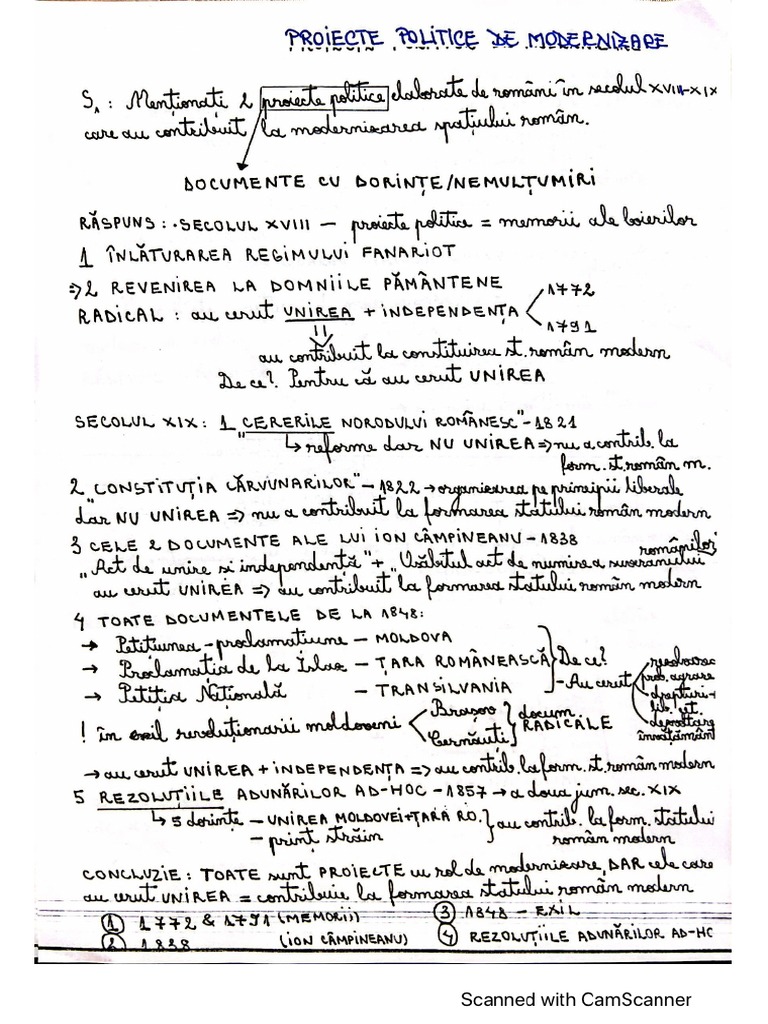 PROIECTE POLITICE DE MODERNIZARE
S1: Menționați 2 proiecte politice elaborate de români în secolul XVIII-XIX
care au contribuit la modernizarea spațiului român.
DOCUMENTE CU DORINȚE/NEMULȚUMIRI
RĂSPUNS: • SECOLUL XVIII — proiecte politice = memorii ale boierilor
1 ÎNLĂTURAREA REGIMULUI FANARIOT
=> 2 REVENIREA LA DOMNIILE PĂMÂNTENE
RADICAL: au cerut UNIREA + INDEPENDENȚA
1772
1791
au contribuit la constituirea st. român modern
De ce? Pentru că au cerut UNIREA
SECOLUL XIX: 1 "CERERILE NORODULUI ROMÂNESC" - 1821
↳ reforme dar NU UNIREA => nu a contrib. la
form. st. român m.
2 "CONSTITUȚIA CĂRVUNARILOR" - 1822 → organizarea pe principii liberale
dar NU UNIREA => nu a contribuit la formarea statului român modern
3 CELE 2 DOCUMENTE ALE LUI ION CÂMPINEANU - 1838
„Act de unire si independentă" + „Osăbitul act de numire a suveranului românilor"
au cerut UNIREA => au contribuit la formarea statului român modern
4 TOATE DOCUMENTELE DE LA 1848:
→ Petitiunea-proclamatiune — MOLDOVA
→ Proclamatia de la Islaz — ȚARA ROMÂNEASCĂ
→ Petiția Națională — TRANSILVANIA
De ce?
- Au cerut
rezolvarea
prob. agrare
drepturi +
lib. cet.
dezvoltarea
învățământ
! în exil revoluționarii moldoveni
Brașov
Cernăuți
docum.
RADICALE
→ au cerut UNIREA + INDEPENDENȚA => au contrib. la form. st. român modern
5 REZOLUȚIILE ADUNĂRILOR AD-HOC - 1857 → a doua jum. sec. XIX
↳ 5 dorințe - UNIREA MOLDOVEI + ȚARA RO.
- prinț străin
au contrib. la form. statului
român modern
CONCLUZIE: TOATE sunt PROIECTE cu rol de modernizare, DAR cele care
au cerut UNIREA = contribuie la formarea statului român modern
① 1772 & 1791 (MEMORII)
② 1838 (ION CÂMPINEANU)
③ 1848 - EXIL
④ REZOLUȚIILE ADUNĂRILOR AD-HC
Scanned with CamScanner